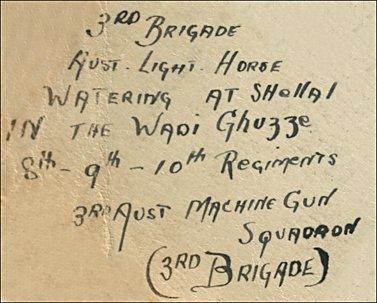 3RD BRIGADE
AUST. LIGHT. HORSE
WATERING AT SHellal
IN THE WADI Ghuzze
8th - 9th - 10th REGIMENTS
3RD AUST MACHINE GUN
SQUADRON
(3RD BRIGADE)